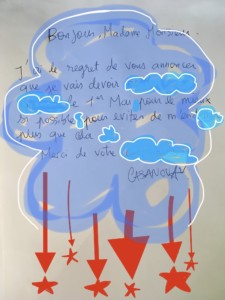 Bonjour, Madame Monsieur.
J'ai le regret de vous annoncer
que je vais devoir
le 1er Mai pour se
si possible pour éviter de
plus que cela.
Merci de votre
CASANOVA